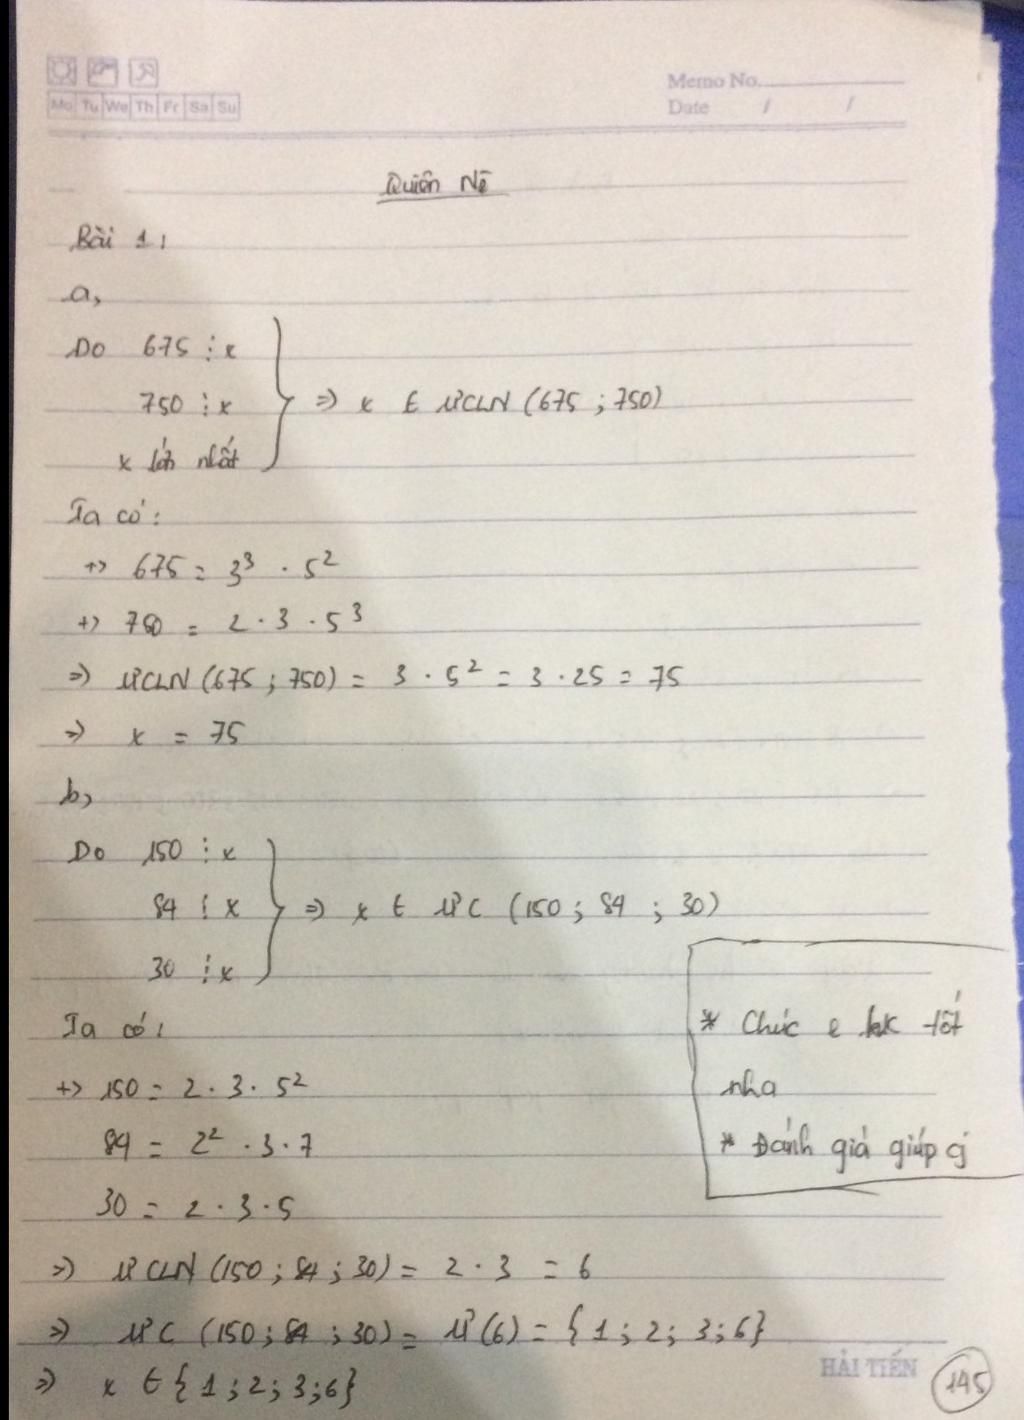 Mo Tu We Th Fr Sa Su
Memo No.
Date / /
Bài 1:
a,
Do 675 ⋮ x
750 ⋮ x
x lớn nhất
=> x ∈ ƯCLN (675 ; 750)
Ta có:
+> 675 = 3³ . 5²
+> 750 = 2 . 3 . 5³
=> ƯCLN (675 ; 750) = 3 . 5² = 3 . 25 = 75
=> x = 75
b,
Do 150 ⋮ x
84 ⋮ x
30 ⋮ x
=> x ∈ ƯC (150 ; 84 ; 30)
Ta có:
+> 150 = 2 . 3 . 5²
84 = 2² . 3 . 7
30 = 2 . 3 . 5
=> ƯCLN (150 ; 84 ; 30) = 2 . 3 = 6
=> ƯC (150 ; 84 ; 30) = Ư(6) = {1 ; 2 ; 3 ; 6}
=> x ∈ {1 ; 2 ; 3 ; 6}
* Chúc e tốt
nha
* Đánh giá giúp cj
HẢI TIẾN
145